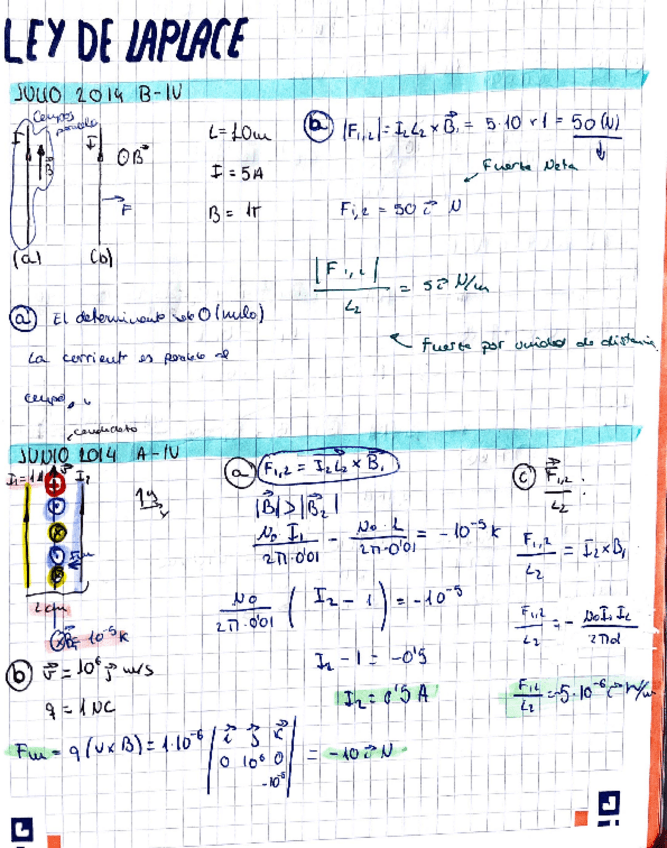 LEY DE LAPLACE
JULIO 2014 B-IV
Campos
paralelo
I
B
I
⊙B⃗
F
(a)
(b)
L = 10m
I = 5A
B = 1T
(b) |F₁,₂| = I₂L₂ × B⃗₁ = 5·10·1 = 50 (N)
Fuerza Neta
F₁,₂ = 50 i⃗ N
|F₁,₂| / L₂ = 5 i⃗ N/m
Fuerza por unidad de distancia
(a) El determinante 0 (nulo)
La corriente es paralela al
campo
JUNIO 2014 A-IV
I₁=1A
I₂
y
x
2cm
⊗B⃗ = 10⁻⁵ k
(a) F₁,₂ = I₂L₂ × B₁
|B₁| > |B₂|
μ₀ I₁ / 2π·0'01 - μ₀·I / 2π·0'01 = -10⁻⁵ k
μ₀ / 2π·0'01 ( I₂ - 1 ) = -10⁻⁵
I₂ - 1 = -0'5
I₂ = 0'5 A
(c) F⃗₁,₂ / L₂ :
F₁,₂ / L₂ = I₂ × B₁
F₁,₂ / L₂ = - μ₀ I₁ I₂ / 2πd
F₁,₂ / L₂ = -5·10⁻⁶ i⃗ N/m
(b) v⃗ = 10⁶ j⃗ m/s
q = 1 μC
Fm = q (v × B) = 1·10⁻⁶ | i⃗ j⃗ k⃗ | = -10 i⃗ N
0 10⁶ 0
-10⁻⁵